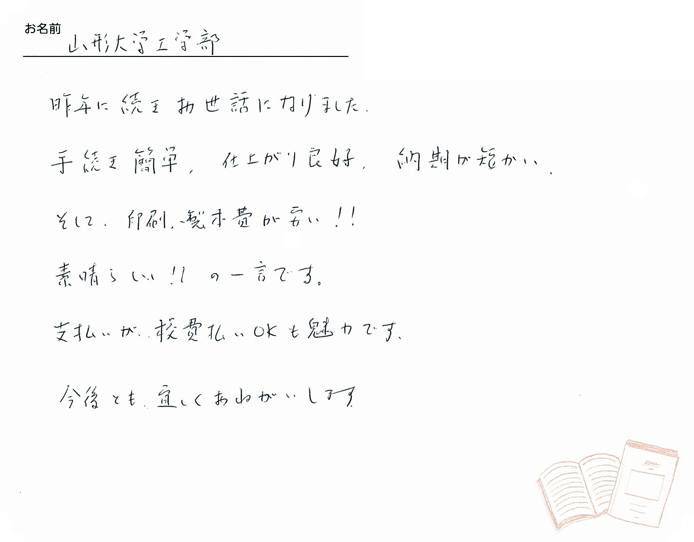 お名前 山形大学工学部
昨年に続きお世話になりました.
手続き簡単, 仕上がり良好, 納期が短かい.
そして、印刷,製本費が安い!!
素晴らしい!! の一言です。
支払いが、校費払いOKも魅力です.
今後とも、宜しくおねがいします